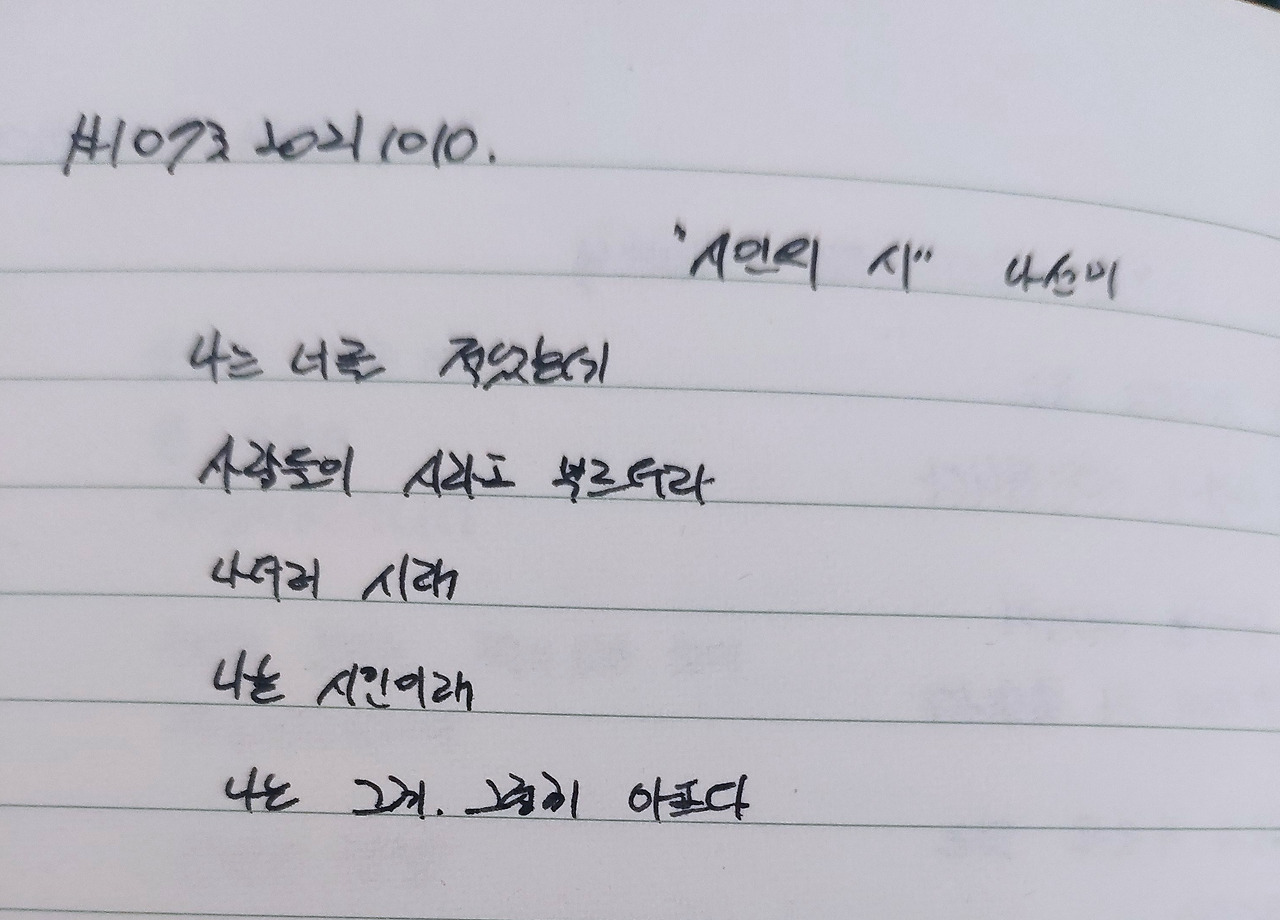 #1073 20211010.
"시인의 시" 나선미
나는 너를 적었는데
사람들이 시라고 부르더라
나더러 시래
나는 시인이래
나는 그게. 그렇게 아프다